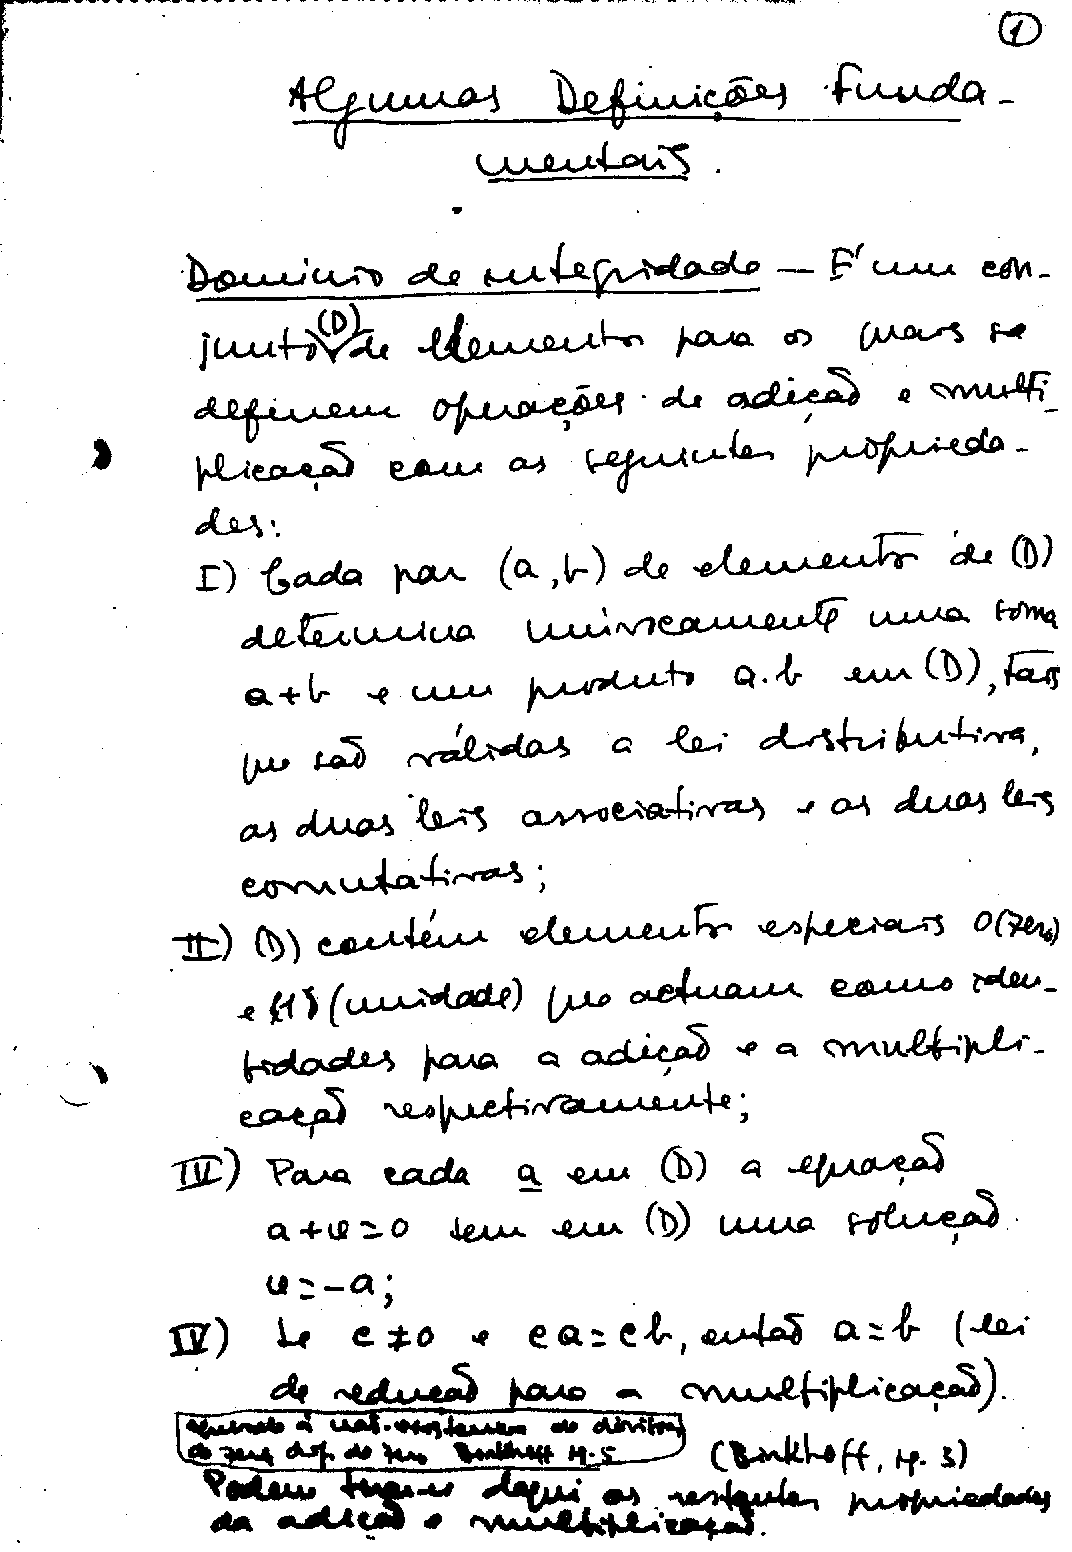 1
Algumas Definições Funda-
mentais.
Dominio de integridade — E' um con-
junto (D) de elementos para os quais se
definem operações de adição e multi-
plicação com as seguintes proprieda-
des:
I) Cada par (a,b) de elementos de (D)
determina univocamente uma soma
a+b e um produto a.b em (D), tais
que são válidas a lei distributiva,
as duas leis associativas e as duas leis
comutativas;
II) (D) contém elementos especiais 0 (zero)
e (1) (unidade) que actuam como iden-
tidades para a adição e a multipli-
cação respectivamente;
IV) Para cada a em (D) a equação
a+x=0 tem em (D) uma solução
x=-a;
IV) Se c≠0 e ca=cb, então a=b (lei
de redução para a multiplicação).
equivale à não-existencia de divisores
de zero, dif. de zero Birkhoff pg. 5
(Birkhoff, pg. 3)
Podem tirar-se daqui as restantes propriedades
da adição e multiplicação.